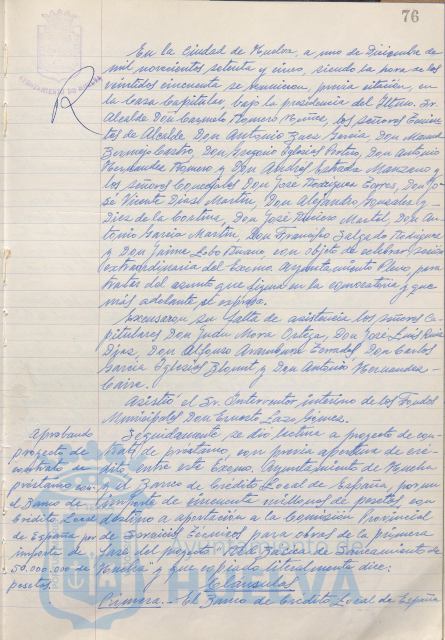 76
AYUNTAMIENTO DE HUELVA
En la Ciudad de Huelva, a uno de Diciembre de
mil novecientos setenta y uno, siendo la hora de las
veintidos cincuenta se reunieron, previa citación, en
la Casa Capitular, bajo la presidencia del Iltmo. Sr.
Alcalde Don Carmelo Romero Núñez, los señores Tenien
tes de Alcalde Don Antonio Baez Garcia, Don Manuel
Bermejo Castro, Don Gregorio Iglesias Protero, Don Antonio
Hernandez Romero y Don Andrés Estrada Manzano y
los señores Concejales Don Jose Rodriguez Torres, Don Jo
sé Vicente Diaz Martin, Don Alejandro Morales y
Diez de la Cortina, Don José Piñero Martel, Don An
tonio Garcia Martin, Don Francisco Salgado Rodriguez
y Don Jaime Lobo Ruano, con objeto de celebrar sesión
extraordinaria del Excmo. Ayuntamiento Pleno, para
tratar del asunto que figura en la convocatoria y que
más adelante se expresa.
Excusaron su falta de asistencia los señores Ca
pitulares Don Juan Mora Ortega, Don José Luis Ruiz
Diaz, Don Alfonso Aramburu Terrados, Don Carlos
Garcia Iglesias Blomit y Don Antonio Hernandez-
Asistió el Sr. Interventor interino de los Fondos
Municipales Don Ernesto Lazo Gómez.
Aprobando
proyecto de
contrato de
préstamo con
el Banco de
Crédito Local
de España, por
importe de
50.000.000 de
pesetas.
Seguidamente se dió lectura a proyecto de con
trato de préstamo, con previa apertura de cré
dito, entre este Excmo. Ayuntamiento de Huelva
y el Banco de Crédito Local de España, por un
importe de cincuenta millones de pesetas, con
destino a aportación a la Comisión Provincial
de Servicios Técnicos para obras de la primera
fase del proyecto "Red Básica de Saneamiento de
Huelva" y que copiado literalmente dice:
Cláusulas
Primera.- El Banco de Crédito Local de España
AYUNTAMIENTO DE
HUELVA